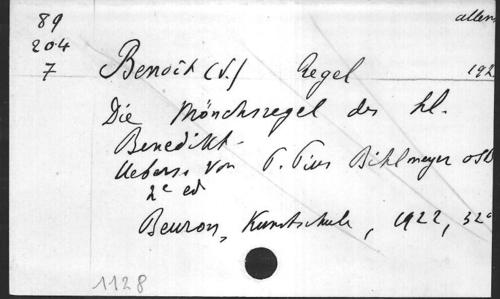 89
204
7
allem
Benoit (S.) Regel 192
Die Mönchsregel des hl.
Benedikt.
Uebers. von P. Pius Bihlmeyer OSB
2e ed
Beuron, Kunstschule, 1922, 32°
1128